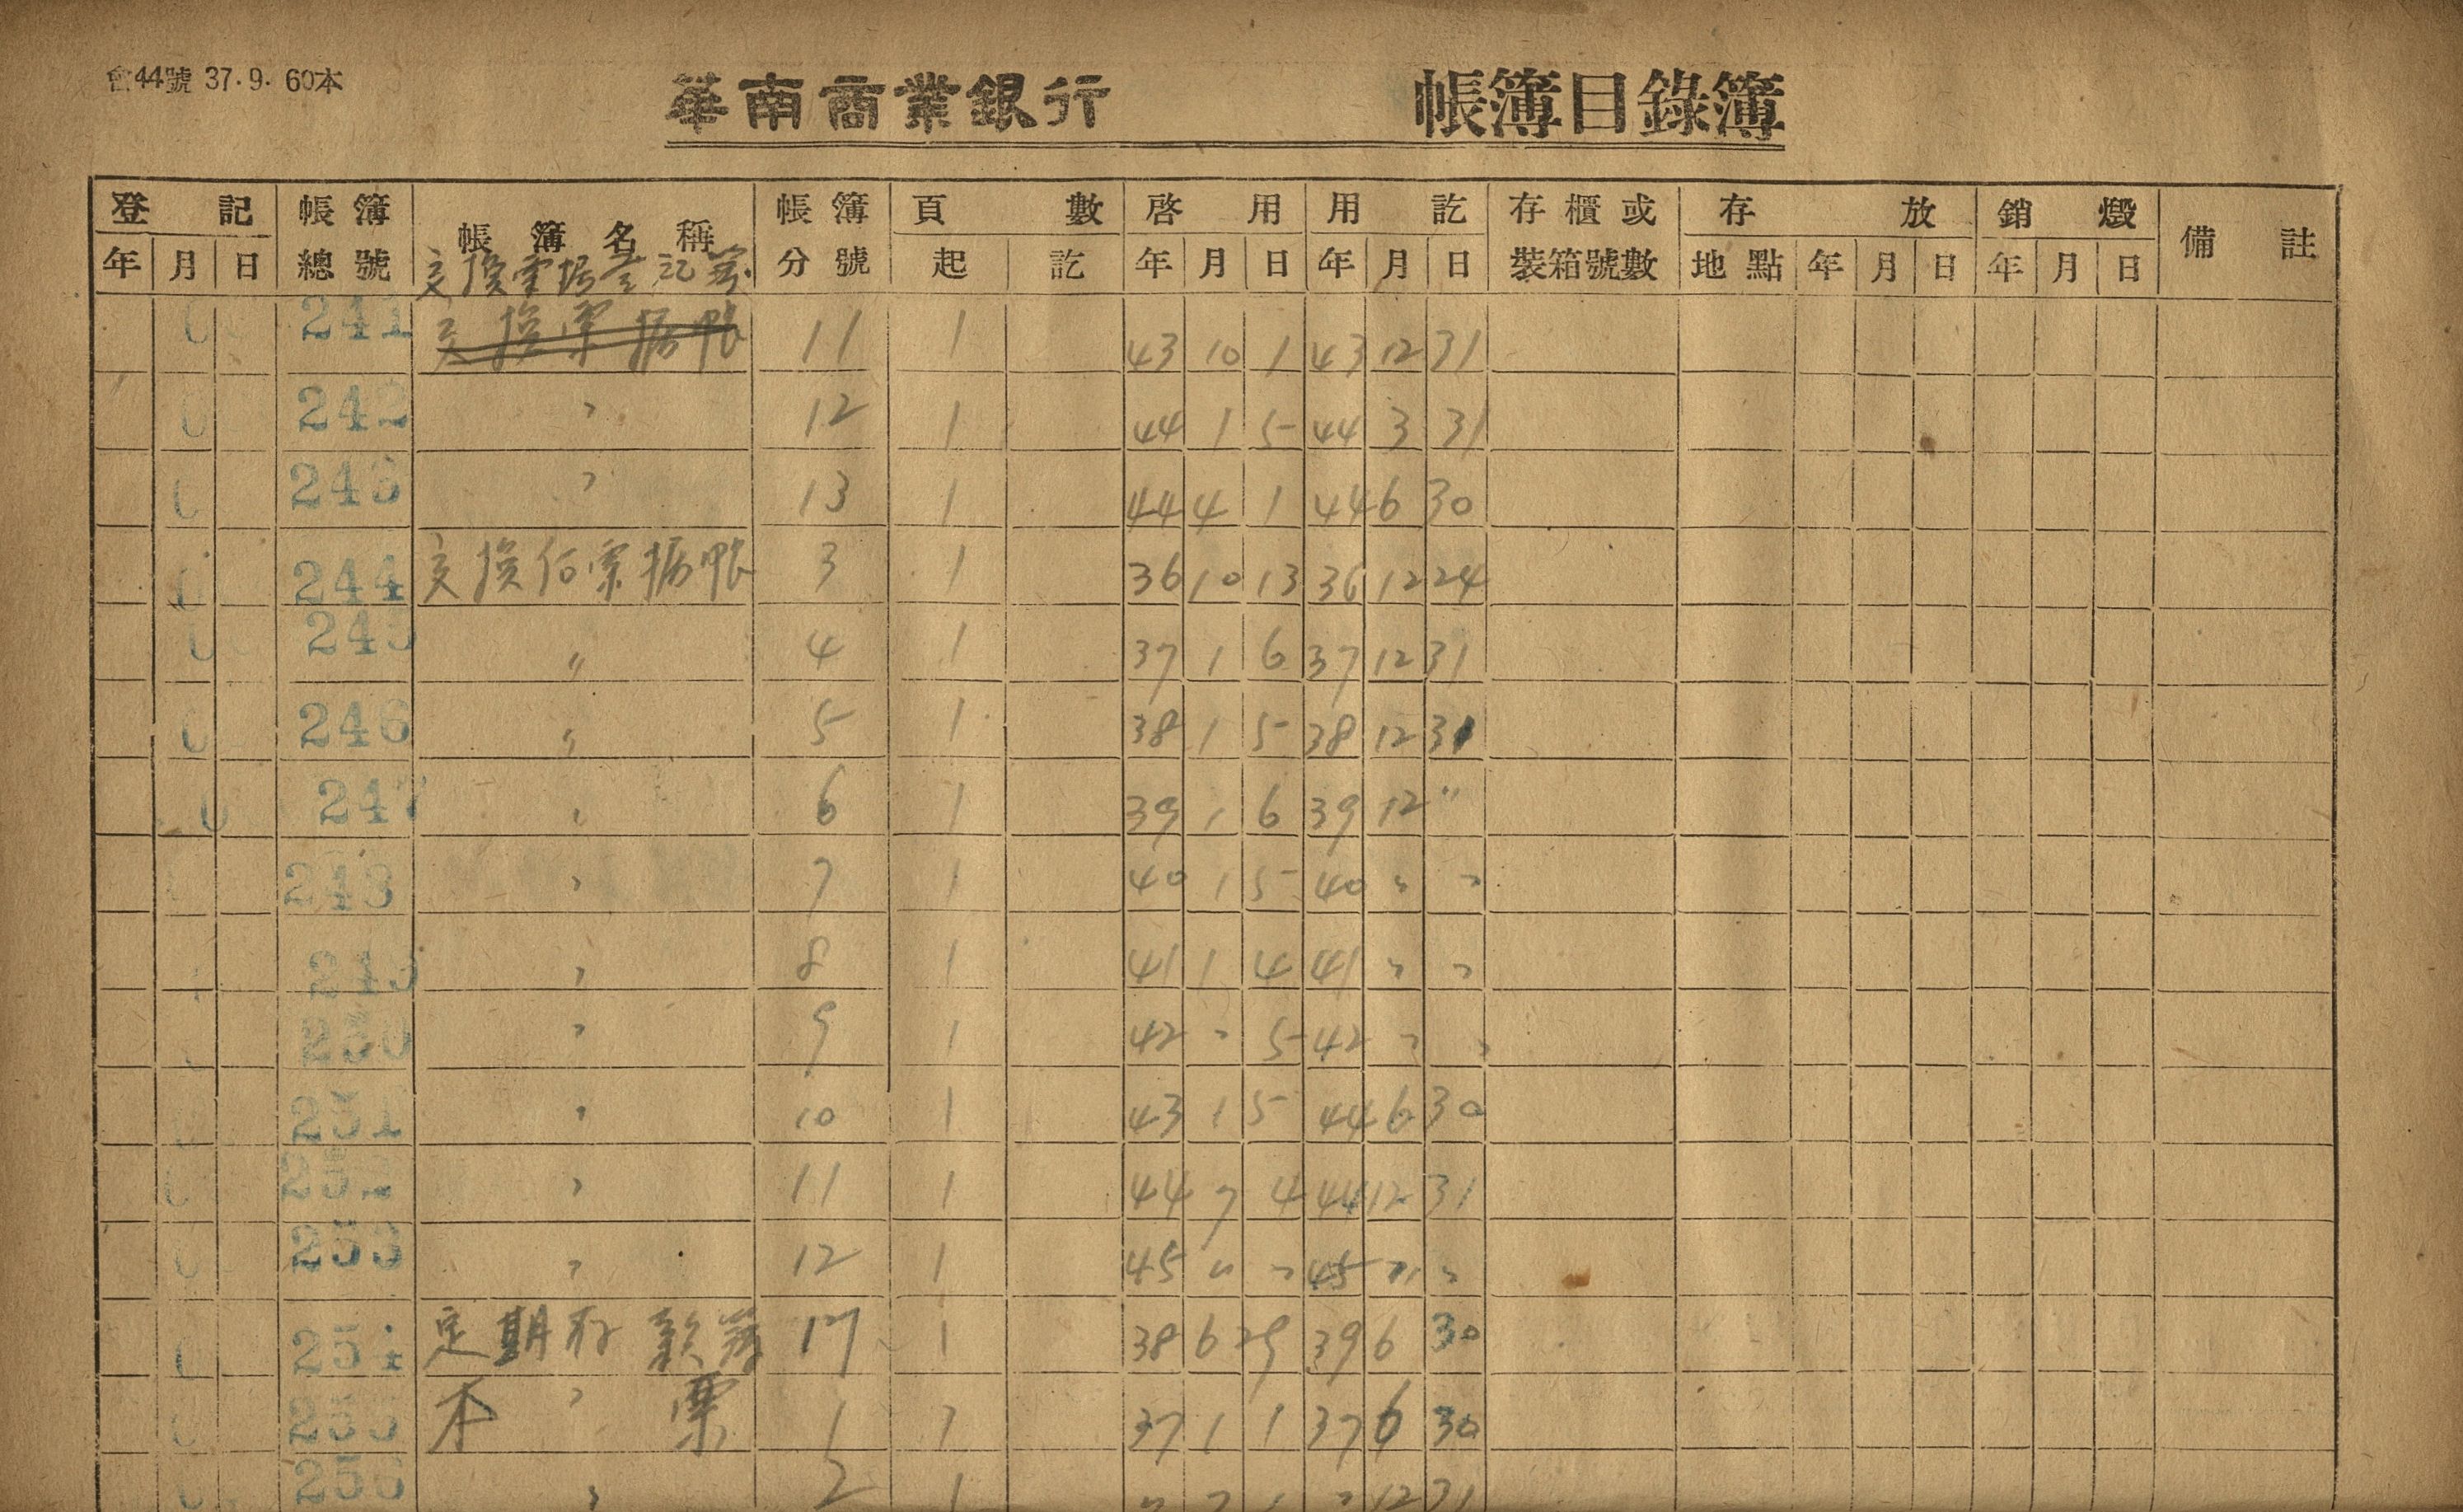 會44號 37.9. 60本
華南商業銀行 帳簿目錄簿
登記 帳簿總號 帳簿名稱 帳簿分號 頁數 啓用 用訖 存櫃或裝箱號數 存放 銷燬 備註
年 月 日 起 訖 年 月 日 年 月 日 地點 年 月 日 年 月 日
交換票據登記簿
0 241 交換票據帳 11 1 43 10 1 43 12 31
0 242 〃 12 1 44 1 5 44 3 31
0 243 〃 13 1 44 4 1 44 6 30
0 244 交換付票據帳 3 1 36 10 13 36 12 24
0 245 〃 4 1 37 1 6 37 12 31
0 246 〃 5 1 38 1 5 38 12 31
0 247 〃 6 1 39 1 6 39 12 〃
248 〃 7 1 40 1 5 40 〃 〃
249 〃 8 1 41 1 4 41 〃 〃
250 〃 9 1 42 〃 5 42 〃 〃
251 〃 10 1 43 1 5 44 6 30
0 252 〃 11 1 44 7 4 44 12 31
0 253 〃 12 1 45 〃 〃 45 〃 〃
0 254 定期存款簿 17 1 38 6 29 39 6 30
0 255 本 〃 票 1 1 37 1 1 37 6 30
0 256 〃 2 1 〃 7 1 〃 12 31